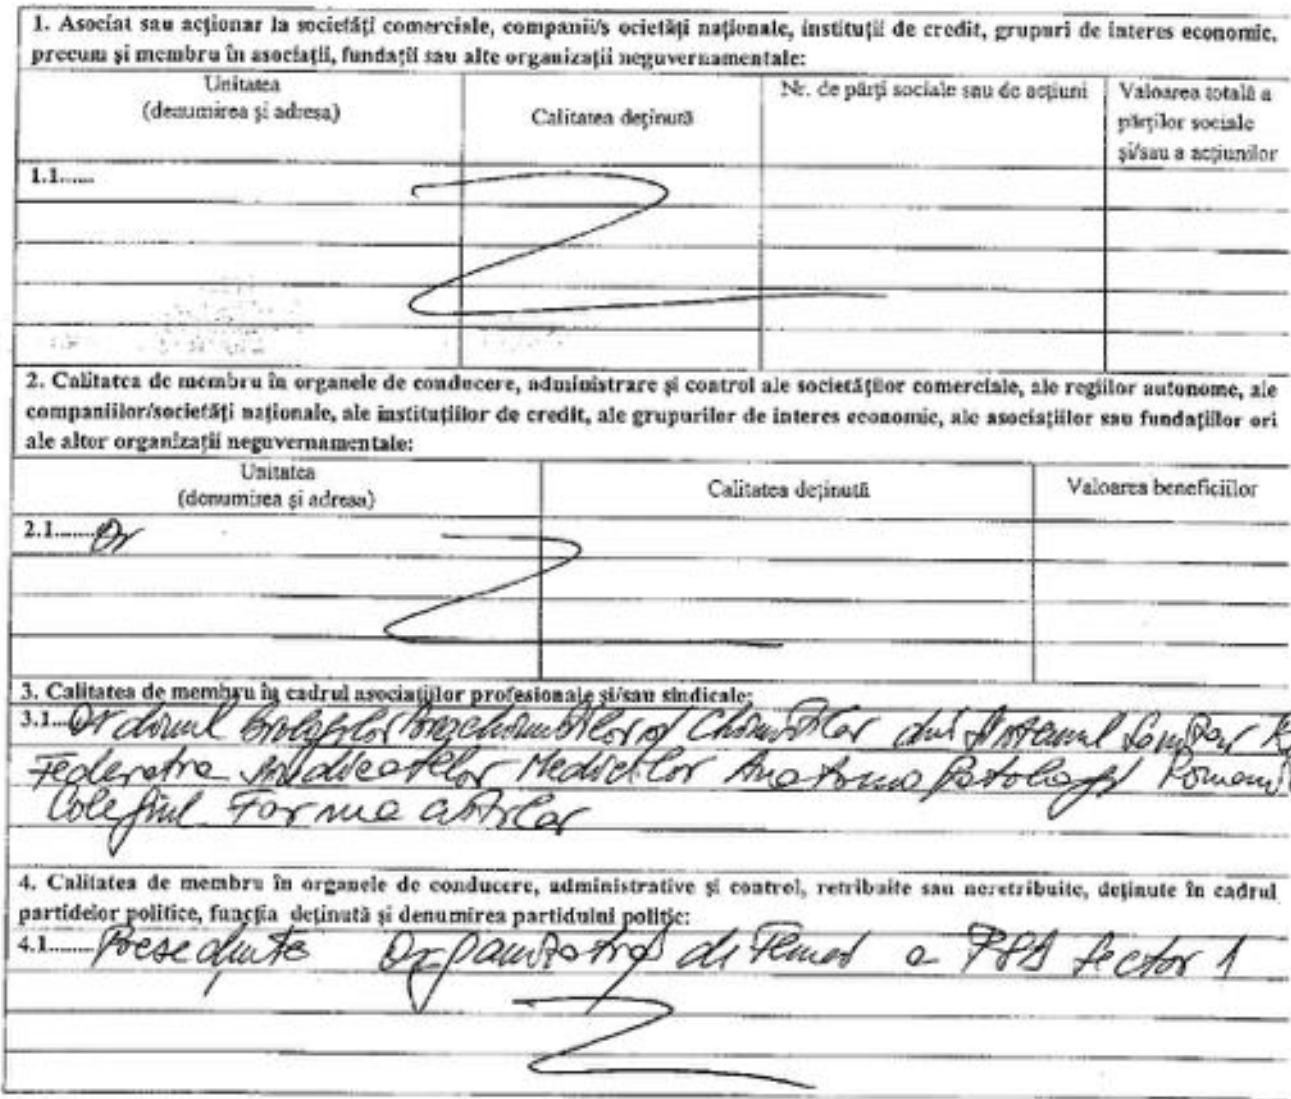 1. Asociat sau acționar la societăți comerciale, companii/s ocietăți naționale, instituții de credit, grupuri de interes economic,
precum și membru în asociații, fundații sau alte organizații neguvernamentale:
Unitatea
(denumirea și adresa)
Calitatea deținută
Nr. de părți sociale sau de acțiuni
Valoarea totală a
părților sociale
și/sau a acțiunilor
1.1......
2. Calitatea de membru în organele de conducere, administrare și control ale societăților comerciale, ale regiilor autonome, ale
companiilor/societăți naționale, ale instituțiilor de credit, ale grupurilor de interes economic, ale asociațiilor sau fundațiilor ori
ale altor organizații neguvernamentale:
Unitatea
(denumirea și adresa)
Calitatea deținută
Valoarea beneficiilor
2.1........
3. Calitatea de membru în cadrul asociațiilor profesionale și/sau sindicale:
3.1... Ordinul Biologilor Biochimistilor și Chimistilor din Sistemul Sanitar
Federatia Sindicatelor Medicilor Anatomo Patologi
Colegiul Farmacistilor
4. Calitatea de membru în organele de conducere, administrative și control, retribuite sau neretribuite, deținute în cadrul
partidelor politice, funcția deținută și denumirea partidului politic:
4.1........ Presedinte Organizatia de Femei a sector 1